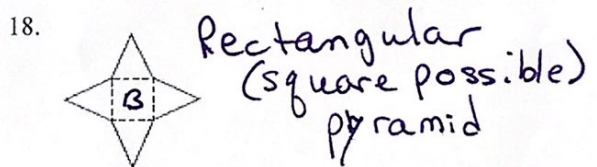 18.
Rectangular
(square possible)
pyramid
B